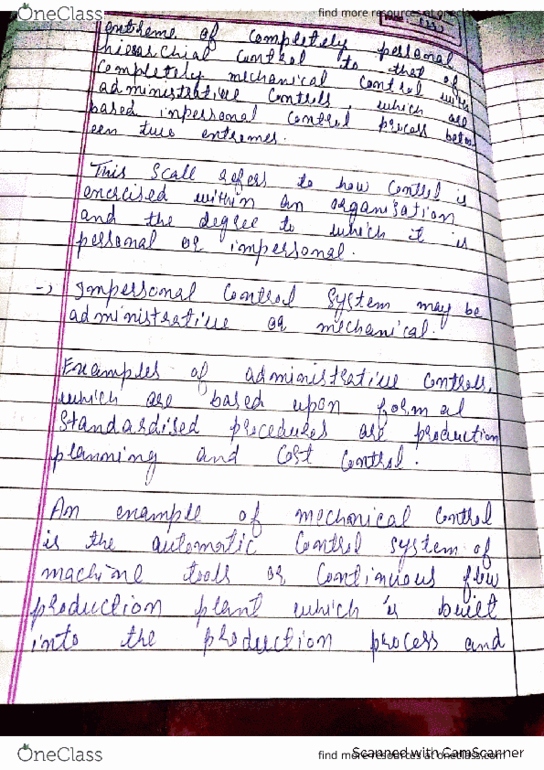 OneClass
find more resources at oneclass.com
entreme of completely personal
hierarchial control to that of
completely mechanical control with
administrative controls, which are
based impersonal control process betw-
een two entremes.
This Scale refers to how control is
enercised within an organisation
and the degree to which it is
personal or impersonal.
-> Impersonal Control System may be
administrative or mechanical.
Enamples of administrative controls,
which are based upon formal
Standardised procedures are production
planning and cost control.
An enample of mechanical control
is the automatic control system of
machine tools or continuous flow
production plant which is built
into the production process and
OneClass
find more resources at oneclass.com
Scanned with CamScanner